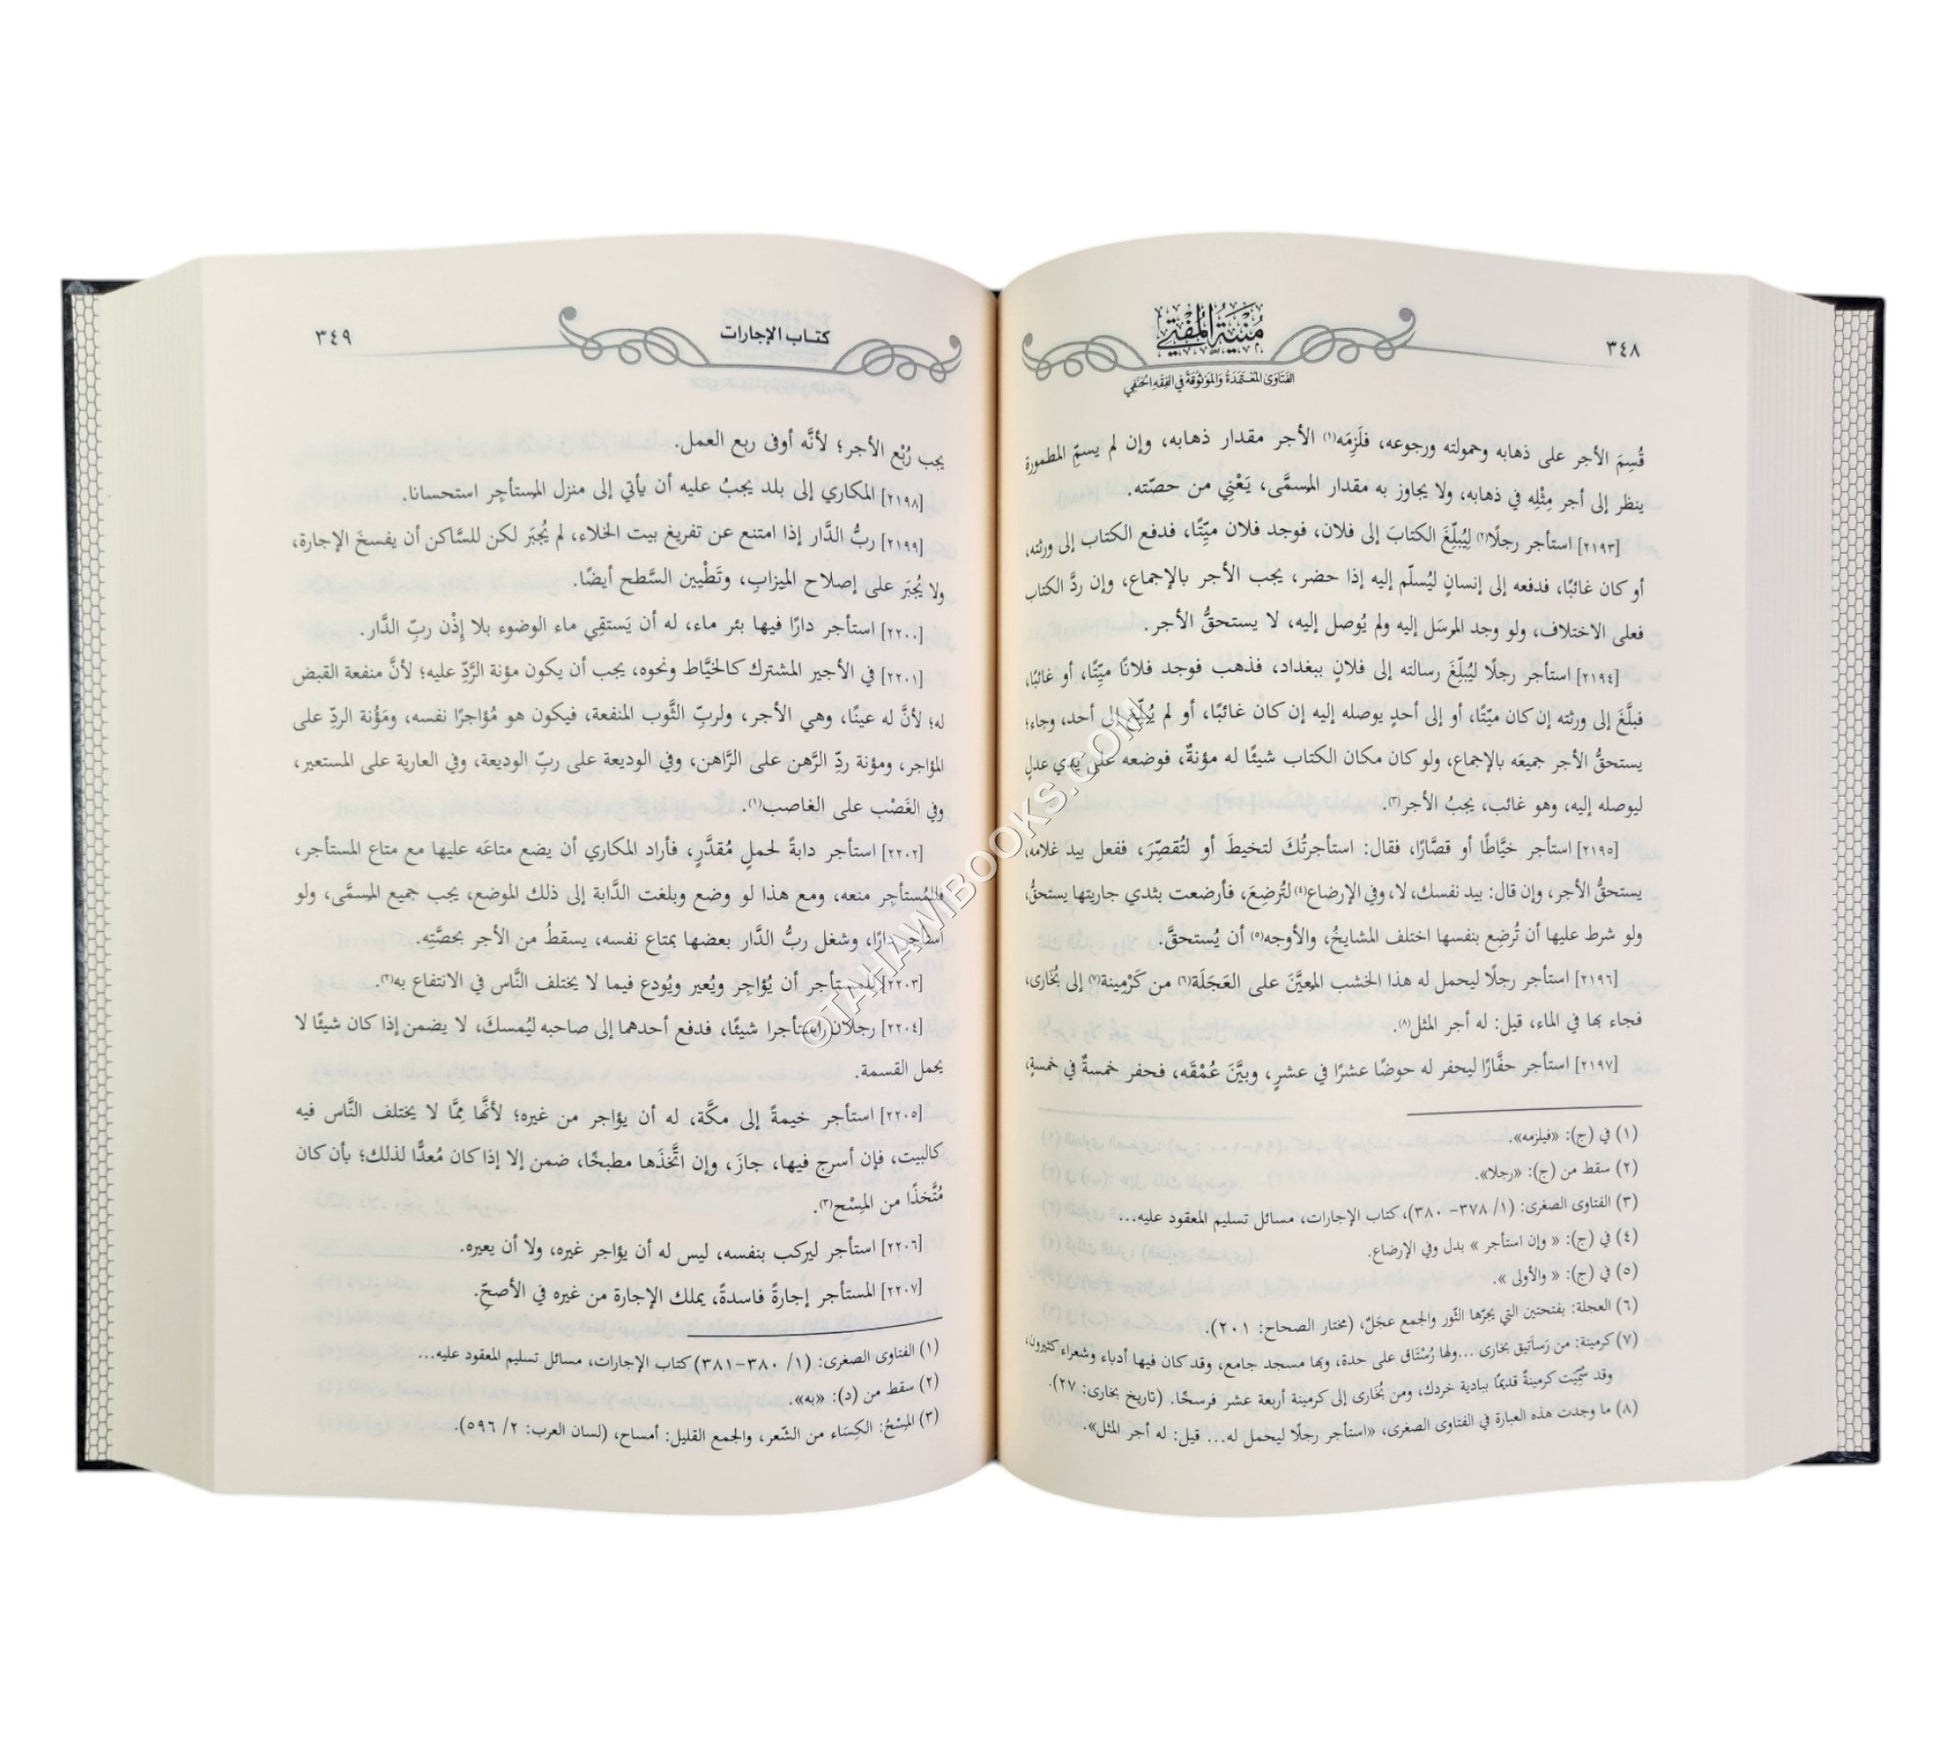 ٣٤٨
مُنْيَةُ المُفْتِي
الفَتَاوَى المُعْتَمَدَةُ وَالمَوْثُوقَةُ فِي الفِقْهِ الحَنَفِي
قُسِمَ الأجر على ذهابه وحمولته ورجوعه، فلَزِمَه(١) الأجر مقدار ذهابه، وإن لم يسمِّ المطمورة
ينظر إلى أجر مِثْلِه في ذهابه، ولا يجاوز به مقدار المسمَّى، يَعْنِي من حصّته.
[٢١٩٣] استأجر رجلًا(٢) لِيُبلِّغَ الكتابَ إلى فلان، فوجد فلان ميِّتًا، فدفع الكتاب إلى ورثته،
أو كان غائبًا، فدفعه إلى إنسانٍ ليُسلّم إليه إذا حضر، يجب الأجر بالإجماع، وإن ردَّ الكتاب
فعلى الاختلاف، ولو وجد المرسَل إليه ولم يُوصل إليه، لا يستحقُّ الأجر.
[٢١٩٤] استأجر رجلًا ليُبلِّغَ رسالته إلى فلانٍ ببغداد، فذهب فوجد فلانًا ميِّتًا، أو غائبًا،
فبلَّغَ إلى ورثته إن كان ميّتًا، أو إلى أحدٍ يوصله إليه إن كان غائبًا، أو لم يُبلِّغ إلى أحد، وجاء؛
يستحقُّ الأجر جميعَه بالإجماع، ولو كان مكان الكتاب شيئًا له مؤنةٌ، فوضعه على يدي عدلٍ
ليوصله إليه، وهو غائب، يجبُ الأجر(٣).
[٢١٩٥] استأجر خيَّاطًا أو قصَّارًا، فقال: استأجرتُكَ لتخيطَ أو لتُقصِّرَ، ففعل بيد غلامه،
يستحقُّ الأجر، وإن قال: بيد نفسك، لا، وفي الإرضاع(٤) لتُرضِعَ، فأرضعت بثدي جاريتها يستحقُّ،
ولو شرط عليها أن تُرضِع بنفسها اختلف المشايخُ، والأوجه(٥) أن يُستحقَّ.
[٢١٩٦] استأجر رجلًا ليحمل له هذا الخشب المعيَّنَ على العَجَلَة(٦) من كَرْمِينة(٧) إلى بُخَارى،
فجاء بها في الماء، قيل: له أجر المثل(٨).
[٢١٩٧] استأجر حفَّارًا ليحفر له حوضًا عشرًا في عشرٍ، وبيَّنَ عُمْقَه، فحفر خمسةٌ في خمسةٍ،
(١) في (ج): «فيلزمه».
(٢) سقط من (ج): «رجلا».
(٣) الفتاوى الصغرى: (١/ ٣٧٨- ٣٨٠)، كتاب الإجارات، مسائل تسليم المعقود عليه...
(٤) في (ج): « وإن استأجر » بدل وفي الإرضاع.
(٥) في (ج): « والأولى ».
(٦) العجلة: بفتحتين التي يجرّها الثّور والجمع عجَلٌ، (مختار الصحاح: ٢٠١).
(٧) كرمينة: من رَساَتيق بخارى ...ولها رُسْتَاق على حدة، وبها مسجد جامع، وقد كان فيها أدباء وشعراء كثيرون،
وقد سُمِّيَت كرمينةُ قديمًا ببادية خردك، ومن بُخَارى إلى كرمينة أربعة عشر فرسخًا. (تاريخ بخارى: ٢٧).
(٨) ما وجدت هذه العبارة في الفتاوى الصغرى، «استأجر رجلًا ليحمل له... قيل: له أجر المثل».
كتاب الإجارات
٣٤٩
يجب رُبْع الأجر؛ لأنَّه أوفى ربع العمل.
[٢١٩٨] المكاري إلى بلد يجبُ عليه أن يأتي إلى منزل المستأجِر استحسانا.
[٢١٩٩] ربُّ الدَّار إذا امتنع عن تفريغ بيت الخلاء، لم يُجبَر لكن للسَّاكن أن يفسخَ الإجارة،
ولا يُجبَر على إصلاح الميزابِ، وتَطْيين السَّطح أيضًا.
[٢٢٠٠] استأجر دارًا فيها بئر ماء، له أن يَستقِي ماء الوضوء بلا إذْن ربِّ الدَّار.
[٢٢٠١] في الأجير المشترك كالخيَّاط ونحوه، يجب أن يكون مؤنة الرَّدِّ عليه؛ لأنَّ منفعة القبض
له؛ لأنَّ له عينًا، وهي الأجر، ولربِّ الثَّوب المنفعة، فيكون هو مُؤاجرًا نفسه، ومَؤُنة الردِّ على
المؤاجر، ومؤنة ردِّ الرَّهن على الرَّاهن، وفي الوديعة على ربِّ الوديعة، وفي العارية على المستعير،
وفي الغَصْب على الغاصب(١).
[٢٢٠٢] استأجر دابةً لحملٍ مُقدَّرٍ، فأراد المكاري أن يضع متاعَه عليها مع متاع المستأجر،
فللمُستأجِر منعه، ومع هذا لو وضع وبلغت الدَّابة إلى ذلك الموضع، يجب جميع المسمَّى، ولو
استأجر دارًا، وشغل ربُّ الدَّار بعضها بمتاع نفسه، يسقطُ من الأجر بحصَّتِه.
[٢٢٠٣] للمستأجر أن يُؤاجِر ويُعير ويُودع فيما لا يختلف النَّاس في الانتفاع به(٢).
[٢٢٠٤] رجلان استأجرا شيئًا، فدفع أحدهما إلى صاحبه ليُمسكَ، لا يضمن إذا كان شيئًا لا
يحمل القسمة.
[٢٢٠٥] استأجر خيمةً إلى مكَّة، له أن يؤاجر من غيره؛ لأنَّها مِمَّا لا يختلف النَّاس فيه
كالبيت، فإن أسرج فيها، جازَ، وإن اتَّخَذَها مطبخًا، ضمن إلا إذا كان مُعدًّا لذلك؛ بأن كان
مُتَّخذًا من المِسْح(٣).
[٢٢٠٦] استأجر ليركب بنفسه، ليس له أن يؤاجر غيره، ولا أن يعيره.
[٢٢٠٧] المستأجر إجارةً فاسدةً، يملك الإجارة من غيره في الأصحِّ.
(١) الفتاوى الصغرى: (١/ ٣٨٠-٣٨١) كتاب الإجارات، مسائل تسليم المعقود عليه...
(٢) سقط من (د): «به».
(٣) المِسْحُ: الكِسَاء من الشّعر، والجمع القليل: أمساح، (لسان العرب: ٢/ ٥٩٦).
©TAHAWIBOOKS.COM